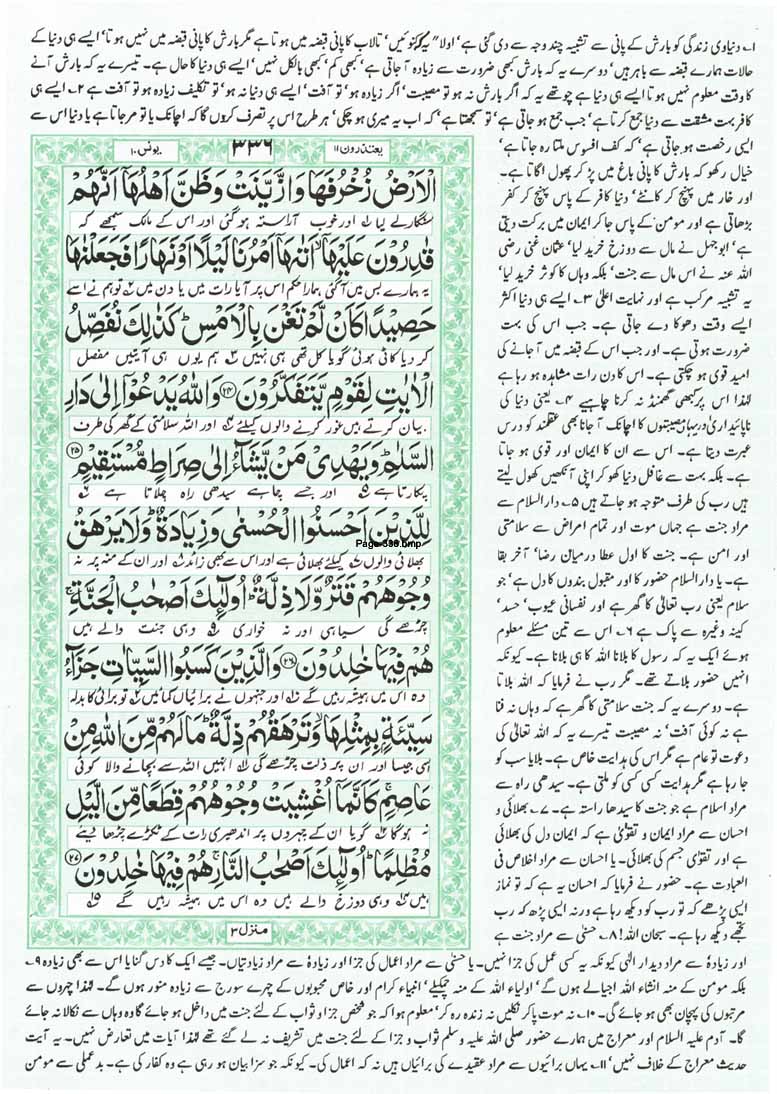 ۱۔ دنیاوی زندگی کو بارش کے پانی سے تشبیہ چند وجہ سے دی گئی ہے' اولا" یہ کہ کنوئیں' تالاب کا پانی قبضہ میں ہوتا ہے مگر بارش کا پانی قبضہ میں نہیں ہوتا' ایسے ہی دنیا کے
حالات ہمارے قبضہ سے باہر ہیں' دوسرے یہ کہ بارش کبھی ضرورت سے زیادہ آ جاتی ہے' کبھی کم' کبھی بالکل نہیں' ایسے ہی دنیا کا حال ہے۔ تیسرے یہ کہ بارش آنے
کا وقت معلوم نہیں ہوتا ایسے ہی دنیا ہے چوتھے یہ کہ اگر بارش نہ ہو تو مصیبت' اگر زیادہ ہو تو آفت' ایسے ہی دنیا نہ ہو' تو تکلیف زیادہ ہو تو آفت ہے ۲۔ ایسے ہی
کافر بہت مشقت سے دنیا جمع کرتا ہے' جب جمع ہو جاتی ہے' تو سمجھتا ہے' کہ اب یہ میری ہو چکی' ہر طرح اس پر تصرف کروں گا کہ اچانک یا تو مر جاتا ہے یا دنیا اس سے
ایسی رخصت ہو جاتی ہے' کہ کف افسوس ملتا رہ جاتا ہے'
خیال رکھو کہ بارش کا پانی باغ میں پڑ کر پھول اگاتا ہے۔
اور خار میں پہنچ کر کانٹے' دنیا کافر کے پاس پہنچ کر کفر
بڑھاتی ہے اور مومن کے پاس جا کر ایمان میں برکت دیتی
ہے' ابوجہل نے مال سے دوزخ خرید لیا' عثمان غنی رضی
اللہ عنہ نے اس مال سے جنت' بلکہ وہاں کا کوثر خرید لیا'
یہ تشبیہ مرکب ہے اور نہایت اعلیٰ ۳۔ ایسے ہی دنیا اکثر
ایسے وقت دھوکا دے جاتی ہے۔ جب اس کی بہت
ضرورت ہوتی ہے۔ اور جب اس کے قبضہ میں آ جانے کی
امید قوی ہو چکتی ہے۔ اس کا دن رات مشاہدہ ہو رہا ہے
لہٰذا اس پر کبھی گھمنڈ نہ کرنا چاہیے ۴۔ یعنی دنیا کی
ناپائیداری اور یہاں مصیبتوں کا اچانک آ جانا بھی عقلمند کو درس
عبرت دیتا ہے۔ اس سے ان کا ایمان اور قوی ہو جاتا
ہے۔ بلکہ بہت سے غافل دنیا کھو کر اپنی آنکھیں کھول لیتے
ہیں رب کی طرف متوجہ ہو جاتے ہیں ۵۔ دارالسلام سے
مراد جنت ہے جہاں موت اور تمام امراض سے سلامتی
اور امن ہے۔ جنت کا اول عطا درمیان رضا' آخر بقا
ہے۔ یا دارالسلام حضور کا اور مقبول بندوں کا دل ہے' جو
سلام یعنی رب تعالیٰ کا گھر ہے اور نفسانی عیوب' حسد'
کینہ وغیرہ سے پاک ہے ۶۔ اس سے تین مسئلے معلوم
ہوئے ایک یہ کہ رسول کا بلانا اللہ کا ہی بلانا ہے۔ کیونکہ
انہیں حضور بلاتے تھے۔ مگر رب نے فرمایا کہ اللہ بلاتا
ہے۔ دوسرے یہ کہ جنت سلامتی کا گھر ہے کہ وہاں نہ فنا
ہے نہ کوئی آفت' نہ مصیبت تیسرے یہ کہ اللہ تعالیٰ کی
دعوت تو عام ہے مگر اس کی ہدایت خاص ہے۔ بلایا سب کو
جا رہا ہے مگر ہدایت کسی کسی کو ملتی ہے۔ سیدھی راہ سے
مراد اسلام ہے جو جنت کا سیدھا راستہ ہے۔ ۷۔ بھلائی و
احسان سے مراد ایمان و تقویٰ ہے کہ ایمان دل کی بھلائی
ہے اور تقویٰ جسم کی بھلائی۔ یا احسان سے مراد اخلاص فی
العبادت ہے۔ حضور نے فرمایا کہ احسان یہ ہے کہ تو نماز
ایسی پڑھے کہ تو رب کو دیکھ رہا ہے ورنہ ایسی پڑھ کہ رب
تجھے دیکھ رہا ہے۔ سبحان اللہ! ۸۔ حسنیٰ سے مراد جنت ہے
یعتذرون ۱۱ ۳۳۶ یونس ۱۰
الْاَرْضُ زُخْرُفَهَا وَازَّيَّنَتْ وَظَنَّ اَهْلُهَآ اَنَّهُمْ
سنگار لے لیا اور خوب آراستہ ہوگئی اور اس کے مالک سمجھے کہ
قٰدِرُوْنَ عَلَيْهَآ ۙ اَتٰىهَآ اَمْرُنَا لَيْلًا اَوْ نَهَارًا فَجَعَلْنٰهَا
یہ ہمارے بس میں آگئی ہمارا حکم اس پر آیا رات میں یا دن میں تو ہم نے اسے
حَصِيْدًا كَاَنْ لَّمْ تَغْنَ بِالْاَمْسِ ۭ كَذٰلِكَ نُفَصِّلُ
کر دیا کاٹی ہوئی گویا کل تھی ہی نہیں ہم یوں ہی آیتیں مفصل
الْاٰيٰتِ لِقَوْمٍ يَّتَفَكَّرُوْنَ ﴿۲۴﴾ وَاللّٰهُ يَدْعُوْٓا اِلٰى دَارِ
بیان کرتے ہیں غور کرنے والوں کیلئے اور اللہ سلامتی کے گھر کی طرف
السَّلٰمِ ۭ وَيَهْدِيْ مَنْ يَّشَآءُ اِلٰى صِرَاطٍ مُّسْتَقِيْمٍ ﴿۲۵﴾
پکارتا ہے اور جسے چاہے سیدھی راہ چلاتا ہے
لِلَّذِيْنَ اَحْسَنُوا الْحُسْنٰى وَزِيَادَةٌ ۭ وَلَا يَرْهَقُ
Page-336.bmp
بھلائی والوں کیلئے بھلائی ہے اور اس سے بھی زائد اور ان کے منہ پر نہ
وُجُوْهَهُمْ قَتَرٌ وَّلَا ذِلَّةٌ ۭ اُولٰٓئِكَ اَصْحٰبُ الْجَنَّةِ ۚ
چڑھے گی سیاہی اور نہ خواری وہی جنت والے ہیں
هُمْ فِيْهَا خٰلِدُوْنَ ﴿۲۶﴾ وَالَّذِيْنَ كَسَبُوا السَّيِّاٰتِ جَزَآءُ
وہ اس میں ہمیشہ رہیں گے اور جنہوں نے برائیاں کمائیں تو برائی کا بدلہ
سَيِّئَةٍۢ بِمِثْلِهَا ۙ وَتَرْهَقُهُمْ ذِلَّةٌ ۭ مَا لَهُمْ مِّنَ اللّٰهِ مِنْ
اسی جیسا اور ان پر ذلت چڑھے گی انہیں اللہ سے بچانے والا کوئی
عَاصِمٍ ۚ كَاَنَّمَآ اُغْشِيَتْ وُجُوْهُهُمْ قِطَعًا مِّنَ الَّيْلِ
نہ ہوگا گویا ان کے چہروں پر اندھیری رات کے ٹکڑے چڑھا دیئے
مُظْلِمًا ۭ اُولٰٓئِكَ اَصْحٰبُ النَّارِ ۚ هُمْ فِيْهَا خٰلِدُوْنَ ﴿۲۷﴾
ہیں وہی دوزخ والے ہیں وہ اس میں ہمیشہ رہیں گے
منزل ۳
اور زیادۃ سے مراد دیدار الٰہی کیونکہ یہ کسی عمل کی جزا نہیں۔ یا حسنیٰ سے مراد اعمال کی جزا اور زیادۃ سے مراد زیادتیاں۔ جیسے ایک کا دس گنا یا اس سے بھی زیادہ ۹۔
بلکہ مومن کے منہ انشاء اللہ اجیالے ہوں گے' اولیاء اللہ کے منہ چمکیلے' انبیاء کرام اور خاص محبوبوں کے چہرے سورج سے زیادہ منور ہوں گے۔ لہٰذا چہروں سے
مرتبوں کی پہچان بھی ہو جائے گی۔ ۱۰۔ نہ موت پا کر نکلیں نہ زندہ رہ کر' معلوم ہوا کہ جو شخص جزا و ثواب کے لئے جنت میں داخل ہو جائے گا وہ وہاں سے نکالا نہ جائے
گا۔ آدم علیہ السلام اور معراج میں ہمارے حضور صلی اللہ علیہ وسلم ثواب و جزا کے لئے جنت میں تشریف نہ لے گئے تھے لہٰذا آیات میں تعارض نہیں۔ نہ یہ آیت
حدیث معراج کے خلاف نہیں' ۱۱۔ یہاں برائیوں سے مراد عقیدے کی برائیاں ہیں نہ کہ اعمال کی۔ کیونکہ جو سزا بیان ہو رہی ہے وہ کفار کی ہے۔ بد عملی سے مومن